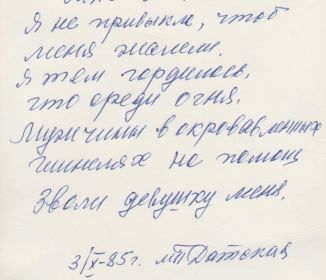 Я не привыкла, чтоб
меня жалели.
Я тем гордилась,
что среди огня,
Мужчины в окровавленных
шинелях на помощь
Звали девушку меня.
3/X-85г. мл Датская